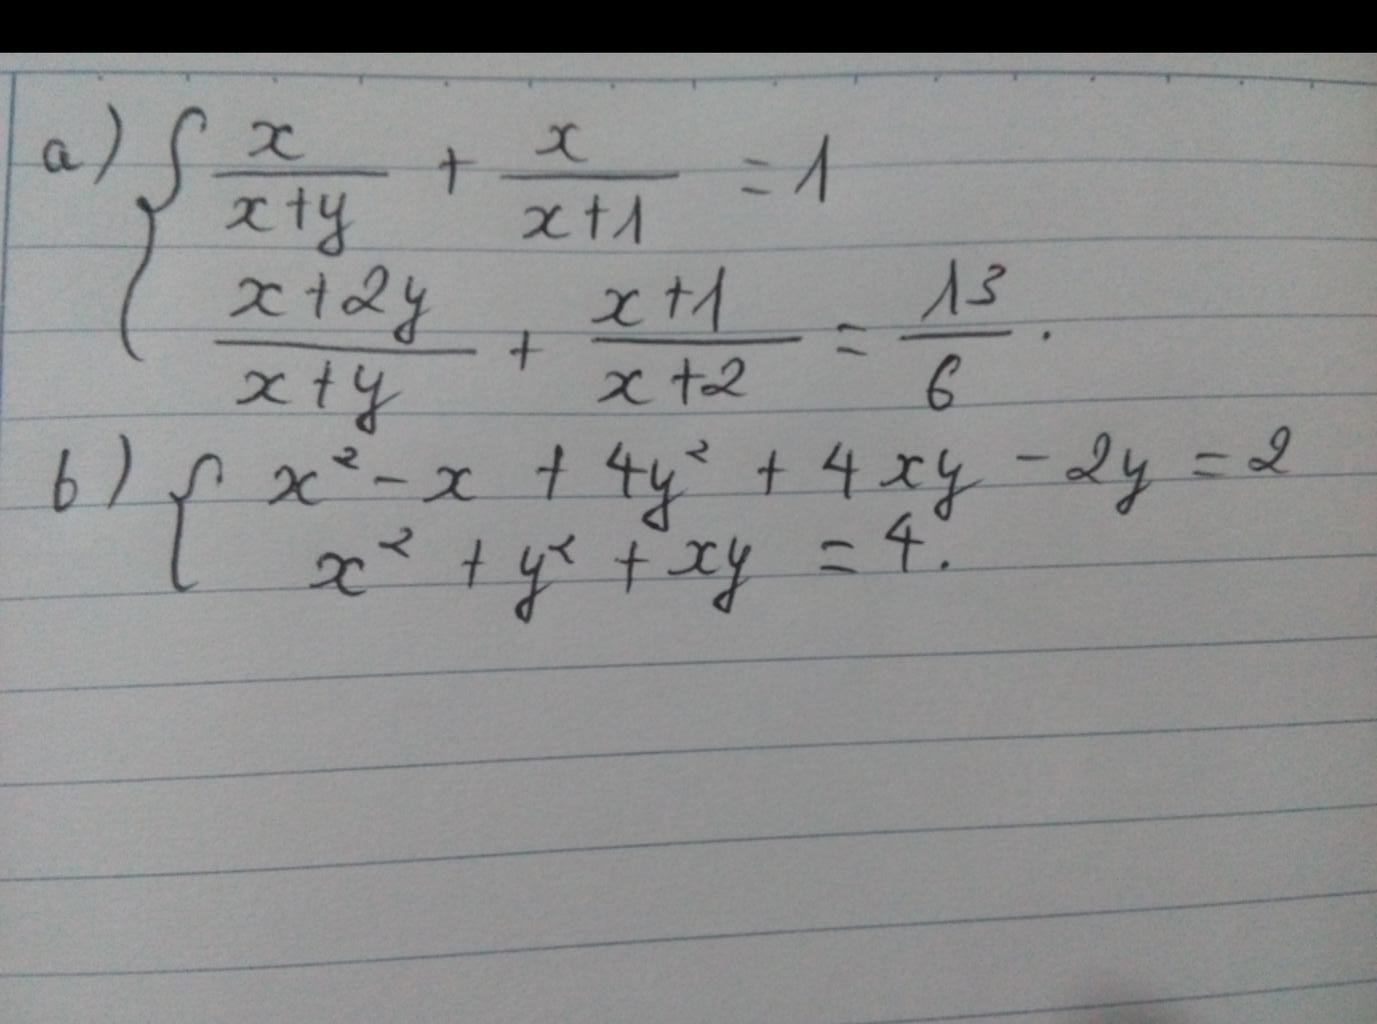 a) { x/(x+y) + x/(x+1) = 1
(x+2y)/(x+y) + (x+1)/(x+2) = 13/6 .
b) { x² - x + 4y² + 4xy - 2y = 2
x² + y² + xy = 4.